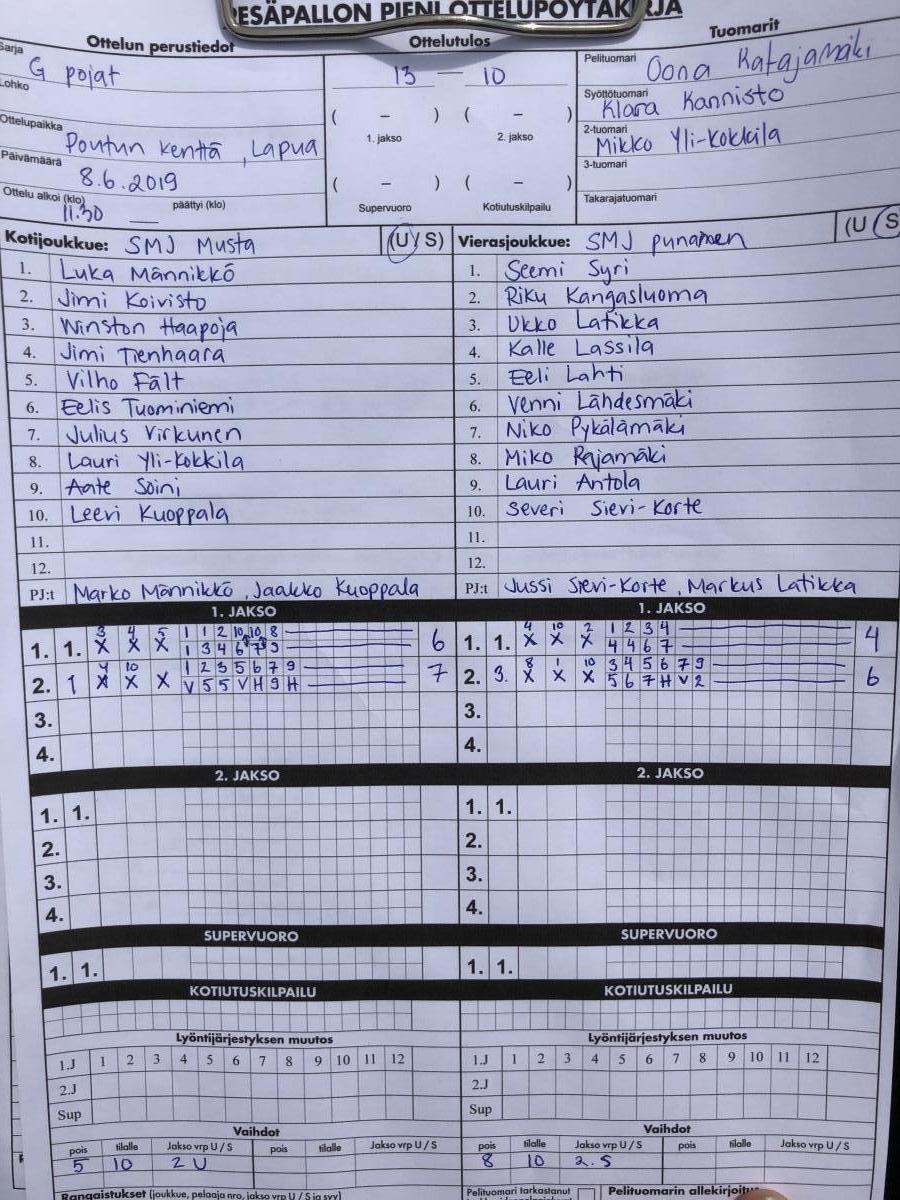 ESÄPALLON PIENI OTTELUPÖYTÄKIRJA
Ottelun perustiedot
Sarja G pojat
Lohko
Ottelupaikka Poutun kenttä, Lapua
Päivämäärä 8.6.2019
Ottelu alkoi (klo) 11.30 — päättyi (klo)
Ottelutulos
13 — 10
( – ) ( – )
1. jakso 2. jakso
( – ) ( – )
Supervuoro Kotiutuskilpailu
Tuomarit
Pelituomari Oona Katajamäki
Syöttötuomari Klara Kannisto
2-tuomari Mikko Yli-Kokkila
3-tuomari
Takarajatuomari
Kotijoukkue: SMJ Musta (U/S)
1. Luka Männikkö
2. Jimi Koivisto
3. Winston Haapoja
4. Jimi Tienhaara
5. Vilho Fält
6. Eelis Tuominiemi
7. Julius Virkunen
8. Lauri Yli-Kokkila
9. Aate Soini
10. Leevi Kuoppala
11.
12.
PJ:t Marko Männikkö, Jaakko Kuoppala
Vierasjoukkue: SMJ punainen (U/S
1. Seemi Syri
2. Riku Kangasluoma
3. Ukko Latikka
4. Kalle Lassila
5. Eeli Lahti
6. Venni Lähdesmäki
7. Niko Pykälämäki
8. Miko Rajamäki
9. Lauri Antola
10. Severi Sievi-Korte
11.
12.
PJ:t Jussi Sievi-Korte, Markus Latikka
1. JAKSO
3 4 5 1 1 2 10 10 8
1. 1. X X X 1 3 4 6 7 9 6
4 10 1 2 3 5 6 7 9
2. 1 X X X V 5 5 V H 9 H 7
3.
4.
1. JAKSO
4 10 2 1 2 3 4
1. 1. X X X 4 4 6 7 4
8 1 10 3 4 5 6 7 9
2. 3. X X X 5 6 7 H V 2 6
3.
4.
2. JAKSO
1. 1.
2.
3.
4.
2. JAKSO
1. 1.
2.
3.
4.
SUPERVUORO
1. 1.
SUPERVUORO
1. 1.
KOTIUTUSKILPAILU
KOTIUTUSKILPAILU
Lyöntijärjestyksen muutos
1.J 1 2 3 4 5 6 7 8 9 10 11 12
2.J
Sup
Lyöntijärjestyksen muutos
1.J 1 2 3 4 5 6 7 8 9 10 11 12
2.J
Sup
Vaihdot
pois tilalle Jakso vrp U / S pois tilalle Jakso vrp U / S
5 10 2 U
Vaihdot
pois tilalle Jakso vrp U / S pois tilalle Jakso vrp U / S
8 10 2. S
Rangaistukset (joukkue, pelaaja nro, jakso vrp U / S ja syy)
Pelituomari tarkastanut
Pelituomarin allekirjoitus